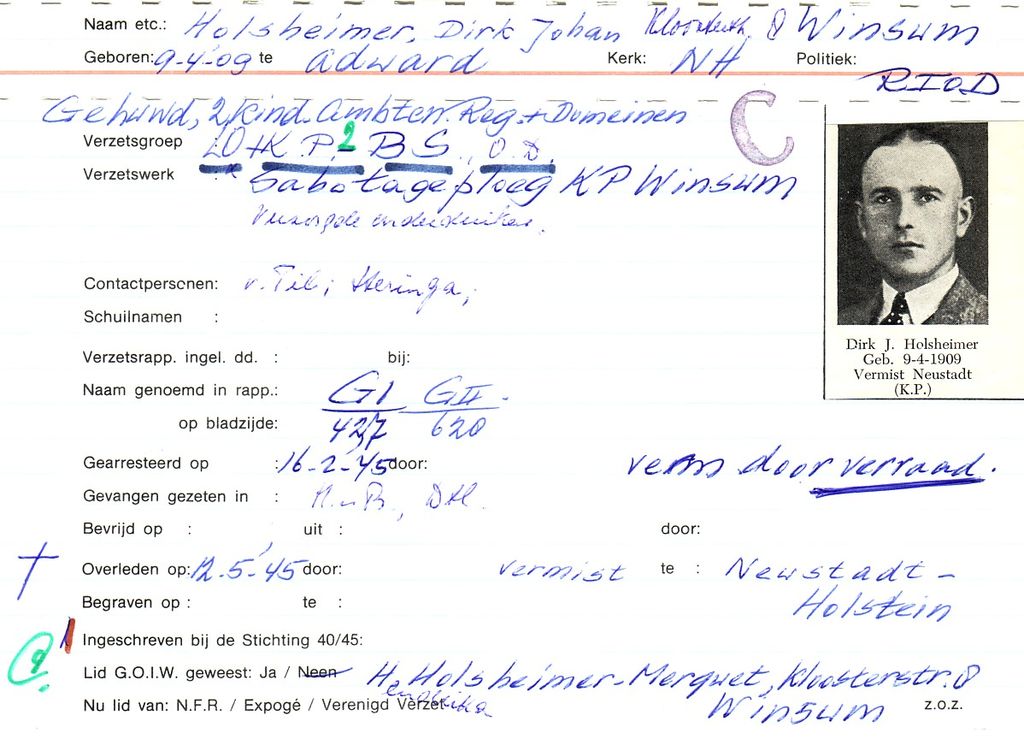 Naam etc.: Holsheimer, Dirk Johan Kloosterstr. 8 Winsum
Geboren: 9-4-09 te Adward Kerk: NH Politiek:
RIOD
Gehuwd, 2 kind. Ambten. Reg. + Domeinen
C
Verzetsgroep LO + K.P. 2 - BS., O.D.
Verzetswerk : Sabotageploeg KP Winsum
Verzorgde onderduiker.
Contactpersonen: v. Til; Heringa;
Schuilnamen :
Dirk J. Holsheimer
Geb. 9-4-1909
Vermist Neustadt
(K.P.)
Verzetsrapp. ingel. dd. : bij:
Naam genoemd in rapp.: GI GII.
op bladzijde: 427 620
Gearresteerd op : 16-2-45 door: verm door verraad.
Gevangen gezeten in :
Bevrijd op : uit : door:
† Overleden op: 12-5-45 door: vermist te : Newstadt-
Holstein
Begraven op : te :
1 Ingeschreven bij de Stichting 40/45:
Lid G.O.I.W. geweest: Ja / Neen H. Holsheimer-Merquet, Kloosterstr. 8
Nu lid van: N.F.R. / Expogé / Verenigd Verzet Winsum z.o.z.